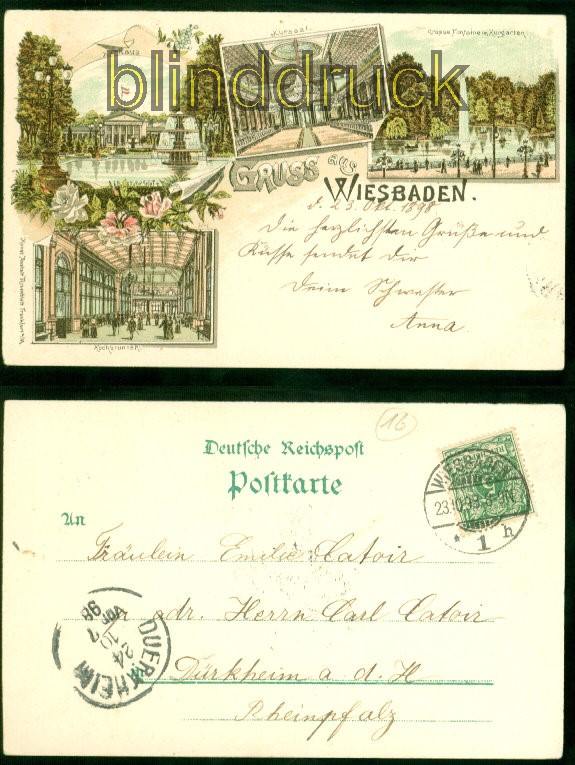 blinddruck
Kursaal
Grosse Fontaine im Kurgarten
GRUSS aus
WIESBADEN.
d. 23 Okt. 1898
Die herzlichsten Grüße und
Küsse sendet Dir
Deine Schwester
Anna.
Kochbrunnen.
16
Deutsche Reichspost
Postkarte
WIESBADEN
23.10.98
* 1 h
An
Fräulein Emilie Catoir
adr. Herrn Carl Catoir
Dürkheim a d. H
Rheinpfalz
DUERKHEIM
24
10
98